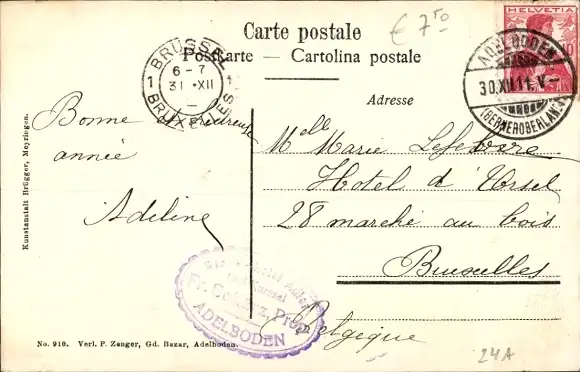 Carte postale
Postkarte — Cartolina postale
Adresse
€ 7,50
HELVETIA
10
ADELBODEN
30.XII.11.V—
(BERNEROBERLAND)
BRUSSEL
1 6-7 1
31 XII
BRUXELLES
Bonne et heureuse
année
Adeline
Melle Marie Lefebvre
Hotel d'Ursel
28 marché au bois
Bruxelles
Belgique
Kursaal
Fr. Prop.
ADELBODEN
Kunstanstalt Brügger, Meyringen.
No. 910. Verl. P. Zenger, Gd. Bazar, Adelboden.
24A